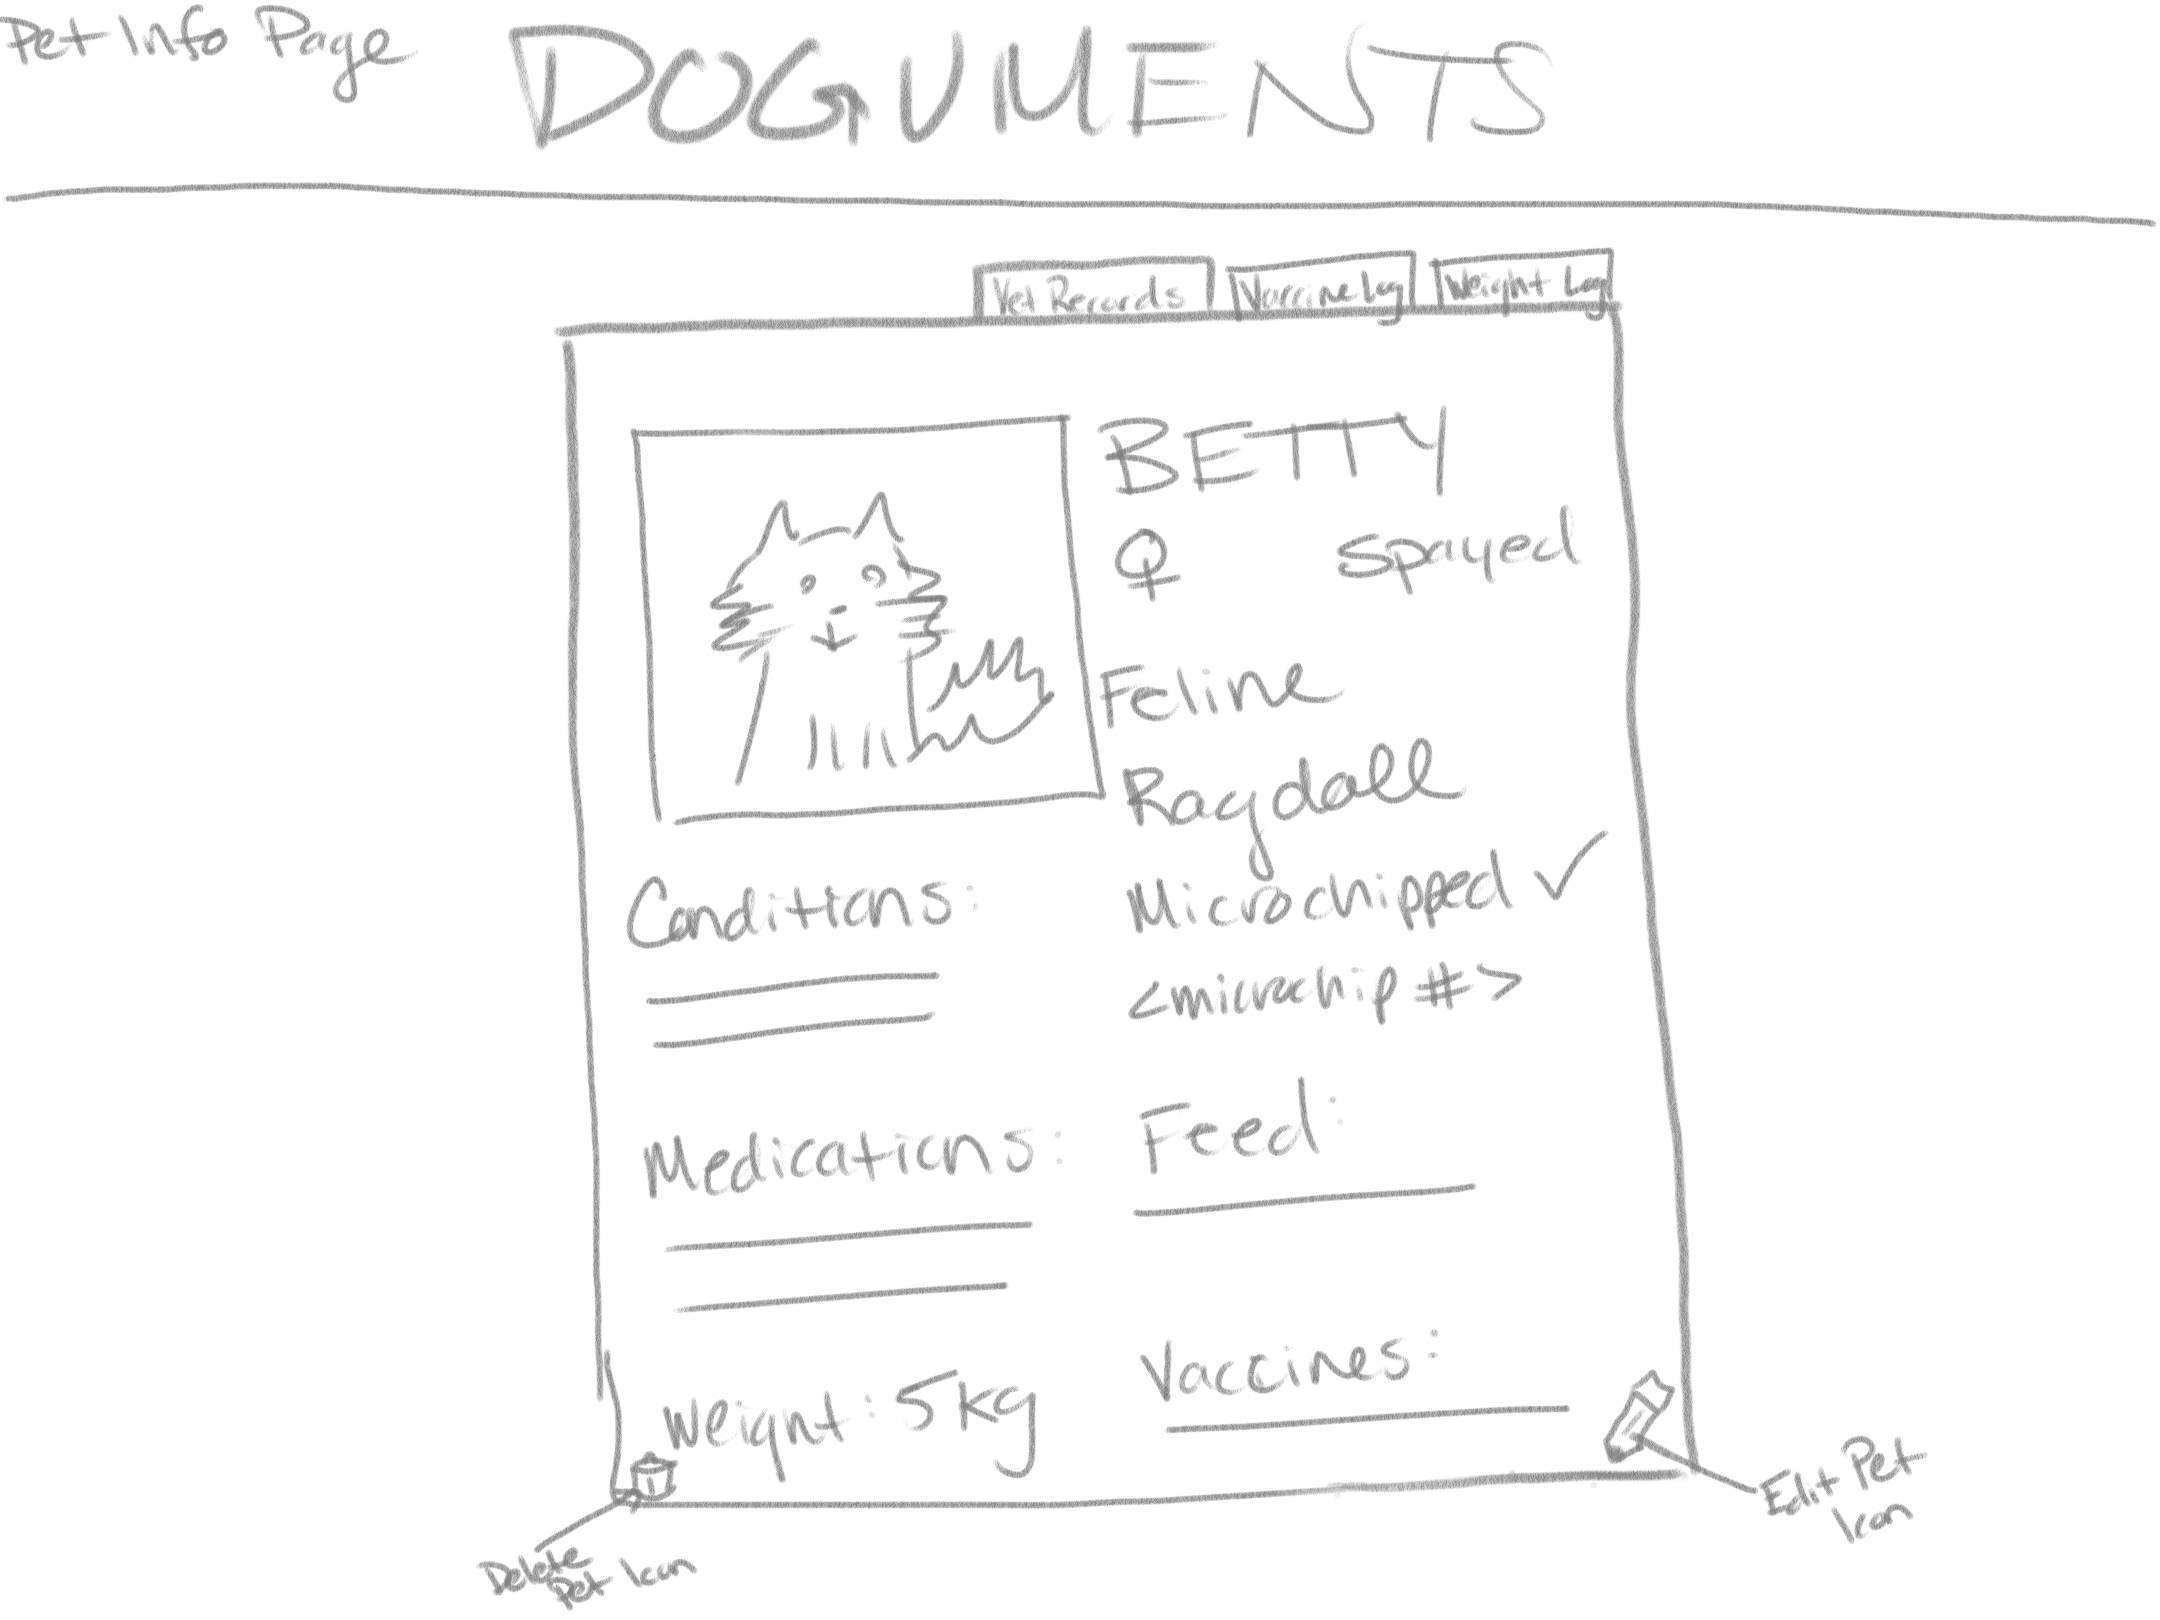 Pet Info Page
DOGUMENTS
Vet Records
Vaccine Log
Weight Log
BETTY
♀ spayed
Feline
Ragdoll
Microchipped ✓
<microchip #>
Conditions:
Medications:
Feed:
Weight: 5kg
Vaccines:
Delete
Pet Icon
Edit Pet
Icon